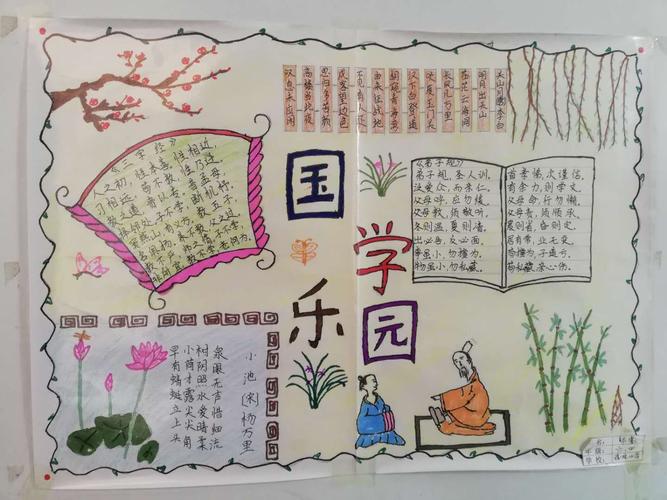 关山月唐李白
明月出天山
苍茫云海间
长风几万里
吹度玉门关
汉下白登道
胡窥青海湾
由来征战地
不见有人还
戍客望边色
思归多苦颜
高楼当此夜
叹息未应闲
《三字经》
人之初,性本善,性相近,
习相远,苟不教,性乃迁,
教之道,贵以专,昔孟母,
择邻处,子不学,断机杼,
窦燕山,有义方,教五子,
名俱扬,养不教,父之过,
教不严,师之惰,子不学,
非所宜,幼不学,老何为。
国学
乐园
《弟子规》
弟子规,圣人训,
泛爱众,而亲仁,
父母呼,应勿缓,
父母教,须敬听,
冬则温,夏则凊,
出必告,反必面,
事虽小,勿擅为,
物虽小,勿私藏,
首孝悌,次谨信,
有余力,则学文。
父母命,行勿懒,
父母责,须顺承。
晨则省,昏则定,
居有常,业无变。
苟擅为,子道亏。
苟私藏,亲心伤。
小池[宋]杨万里
泉眼无声惜细流
树阴照水爱晴柔
小荷才露尖尖角
早有蜻蜓立上头
年级:
学校: